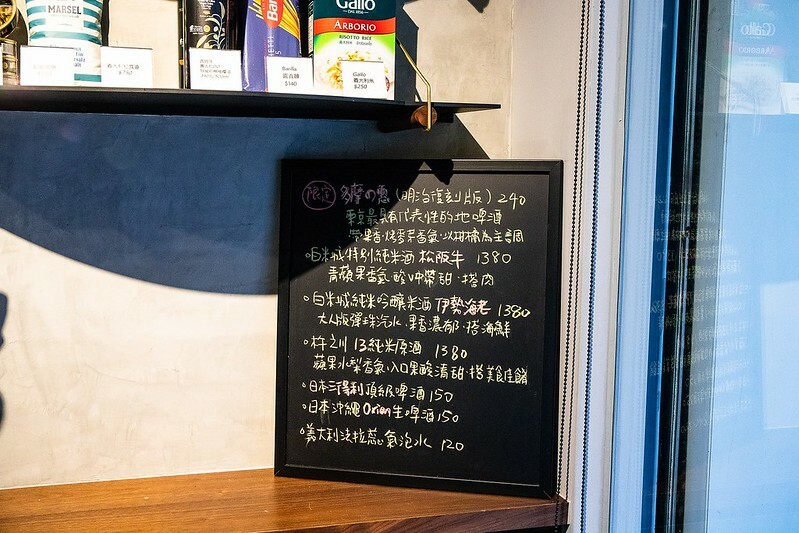 MARSEL
Gallo
ARBORIO
RISOTTO RICE
$750
Barilla
$140
Gallo
義大利米
$250
限定 多摩の恵(明治復刻版) 240
東京最具有代表性的地啤酒
帶果香·烤麥芽香氣·以柑橘為主調
白米城特別純米酒 松阪牛 1380
青蘋果香氣·酸中帶甜·搭肉
白米城純米吟釀米酒 伊勢海老 1380
大人版彈珠汽水·果香濃郁·搭海鮮
杵之川 13純米原酒 1380
蘋果水梨香氣·入口果酸清甜·搭美佳餚
日本三得利頂級啤酒 150
日本沖繩Orion生啤酒 150
義大利法拉蕊氣泡水 120